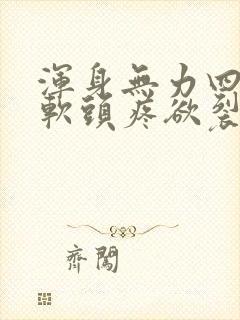 渾身無力四
軟頭疼欲裂
齊闖